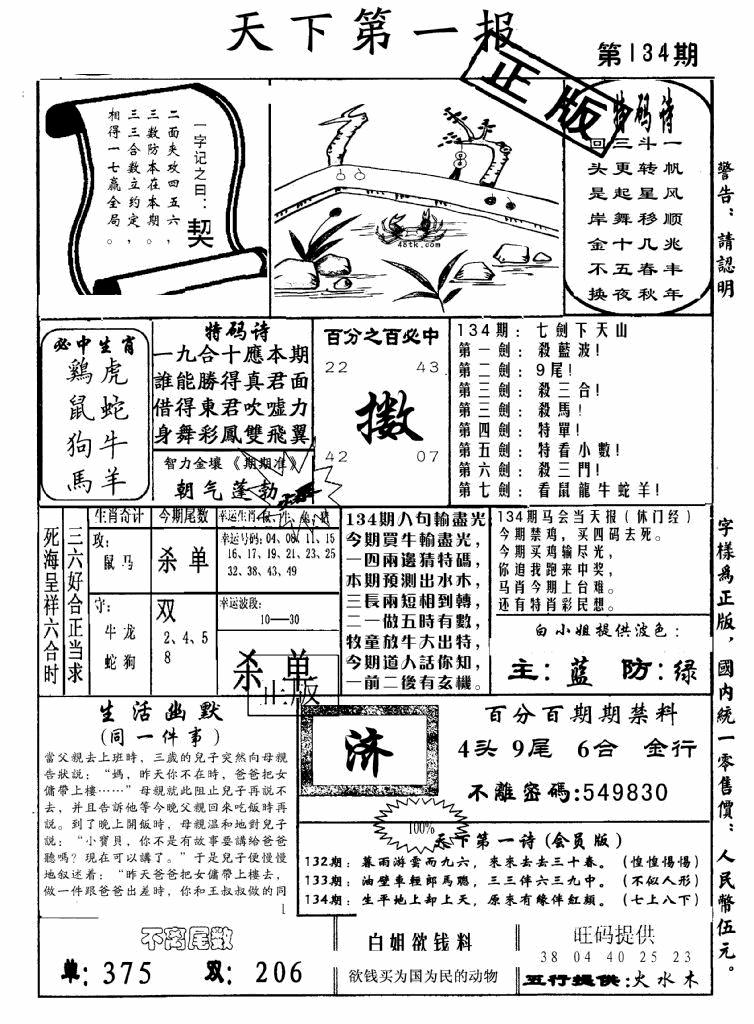 天下第一报
第134期
正版
一字记之曰：契
二面夹攻四五六，
三数防本在本期，
三三合数立约定，
相得一七赢全局。
48tk.com
特码诗
一帆风顺兆丰年
斗转星移几春秋
三更起舞十五夜
回头是岸金不换
警告：請認明
字樣為正版，國内統一零售價：人民幣伍元。
必中生肖
鷄虎
鼠蛇
狗牛
馬羊
特码诗
一九合十應本期
誰能勝得真君面
借得東君吹噓力
身舞彩鳳雙飛翼
智力金壤《期期准》
朝气蓬勃
百分之百必中
22 43
擞
42 07
134期：七劍下天山
第一劍：殺藍波！
第二劍：9尾！
第三劍：殺三合！
第三劍：殺馬！
第四劍：特單！
第五劍：特看小數！
第六劍：殺三門！
第七劍：看鼠龍牛蛇羊！
三六好合正当求
死海呈祥六合时
生肖奇计
攻：
鼠马
守：
牛龙
蛇狗
今期尾数
杀单
双
2、4、5
8
幸运号码：04、08、11、15
16、17、19、21、23、25
32、38、43、49
幸运波段：
10—30
杀单
正版
134期八句輸盡光
今期買牛輸盡光，
一四兩邊猜特碼，
本期預測出水木，
三長兩短相到轉，
二一做五時有數，
牧童放牛大出特，
今期道人話你知，
一前二後有玄機。
134期马会当天报（休门经）
今期禁鸡，买四码去死。
今期买鸡输尽光，
你追我跑来中奖，
马肖今期上台难。
还有特肖彩民想。
白小姐提供波色：
主：蓝 防：绿
生活幽默
(同一件事)
當父親去上班時，三歲的兒子突然向母親
告狀説：“媽，昨天你不在時，爸爸把女
傭帶上樓……”母親就此阻止兒子再説不
去，并且告訴他等今晚父親回來吃飯時再
説。到了晚上開飯時，母親温和地對兒子
説：“小寶貝，你不是有故事要講給爸爸
聽嗎？現在可以講了。”于是兒子便慢慢
地叙述着：“昨天爸爸把女傭帶上樓去，
做一件跟爸爸出差時，你和王叔叔做的同
济
百分百期期禁料
4头 9尾 6合 金行
不離密碼:549830
100%
天下第一诗(会员版)
132期：暮雨游雲而九六，来来去去三十春。（惶惶惕惕）
133期：油壁車輕郎馬驄，三三伴六三九中。（不似人形）
134期：生平地上却上天，原來有緣伴紅顏。（七上八下）
不离尾数
单：375 双：206
白姐欲钱料
欲钱买为国为民的动物
旺码提供
38 04 40 25 23
五行提供：火水木